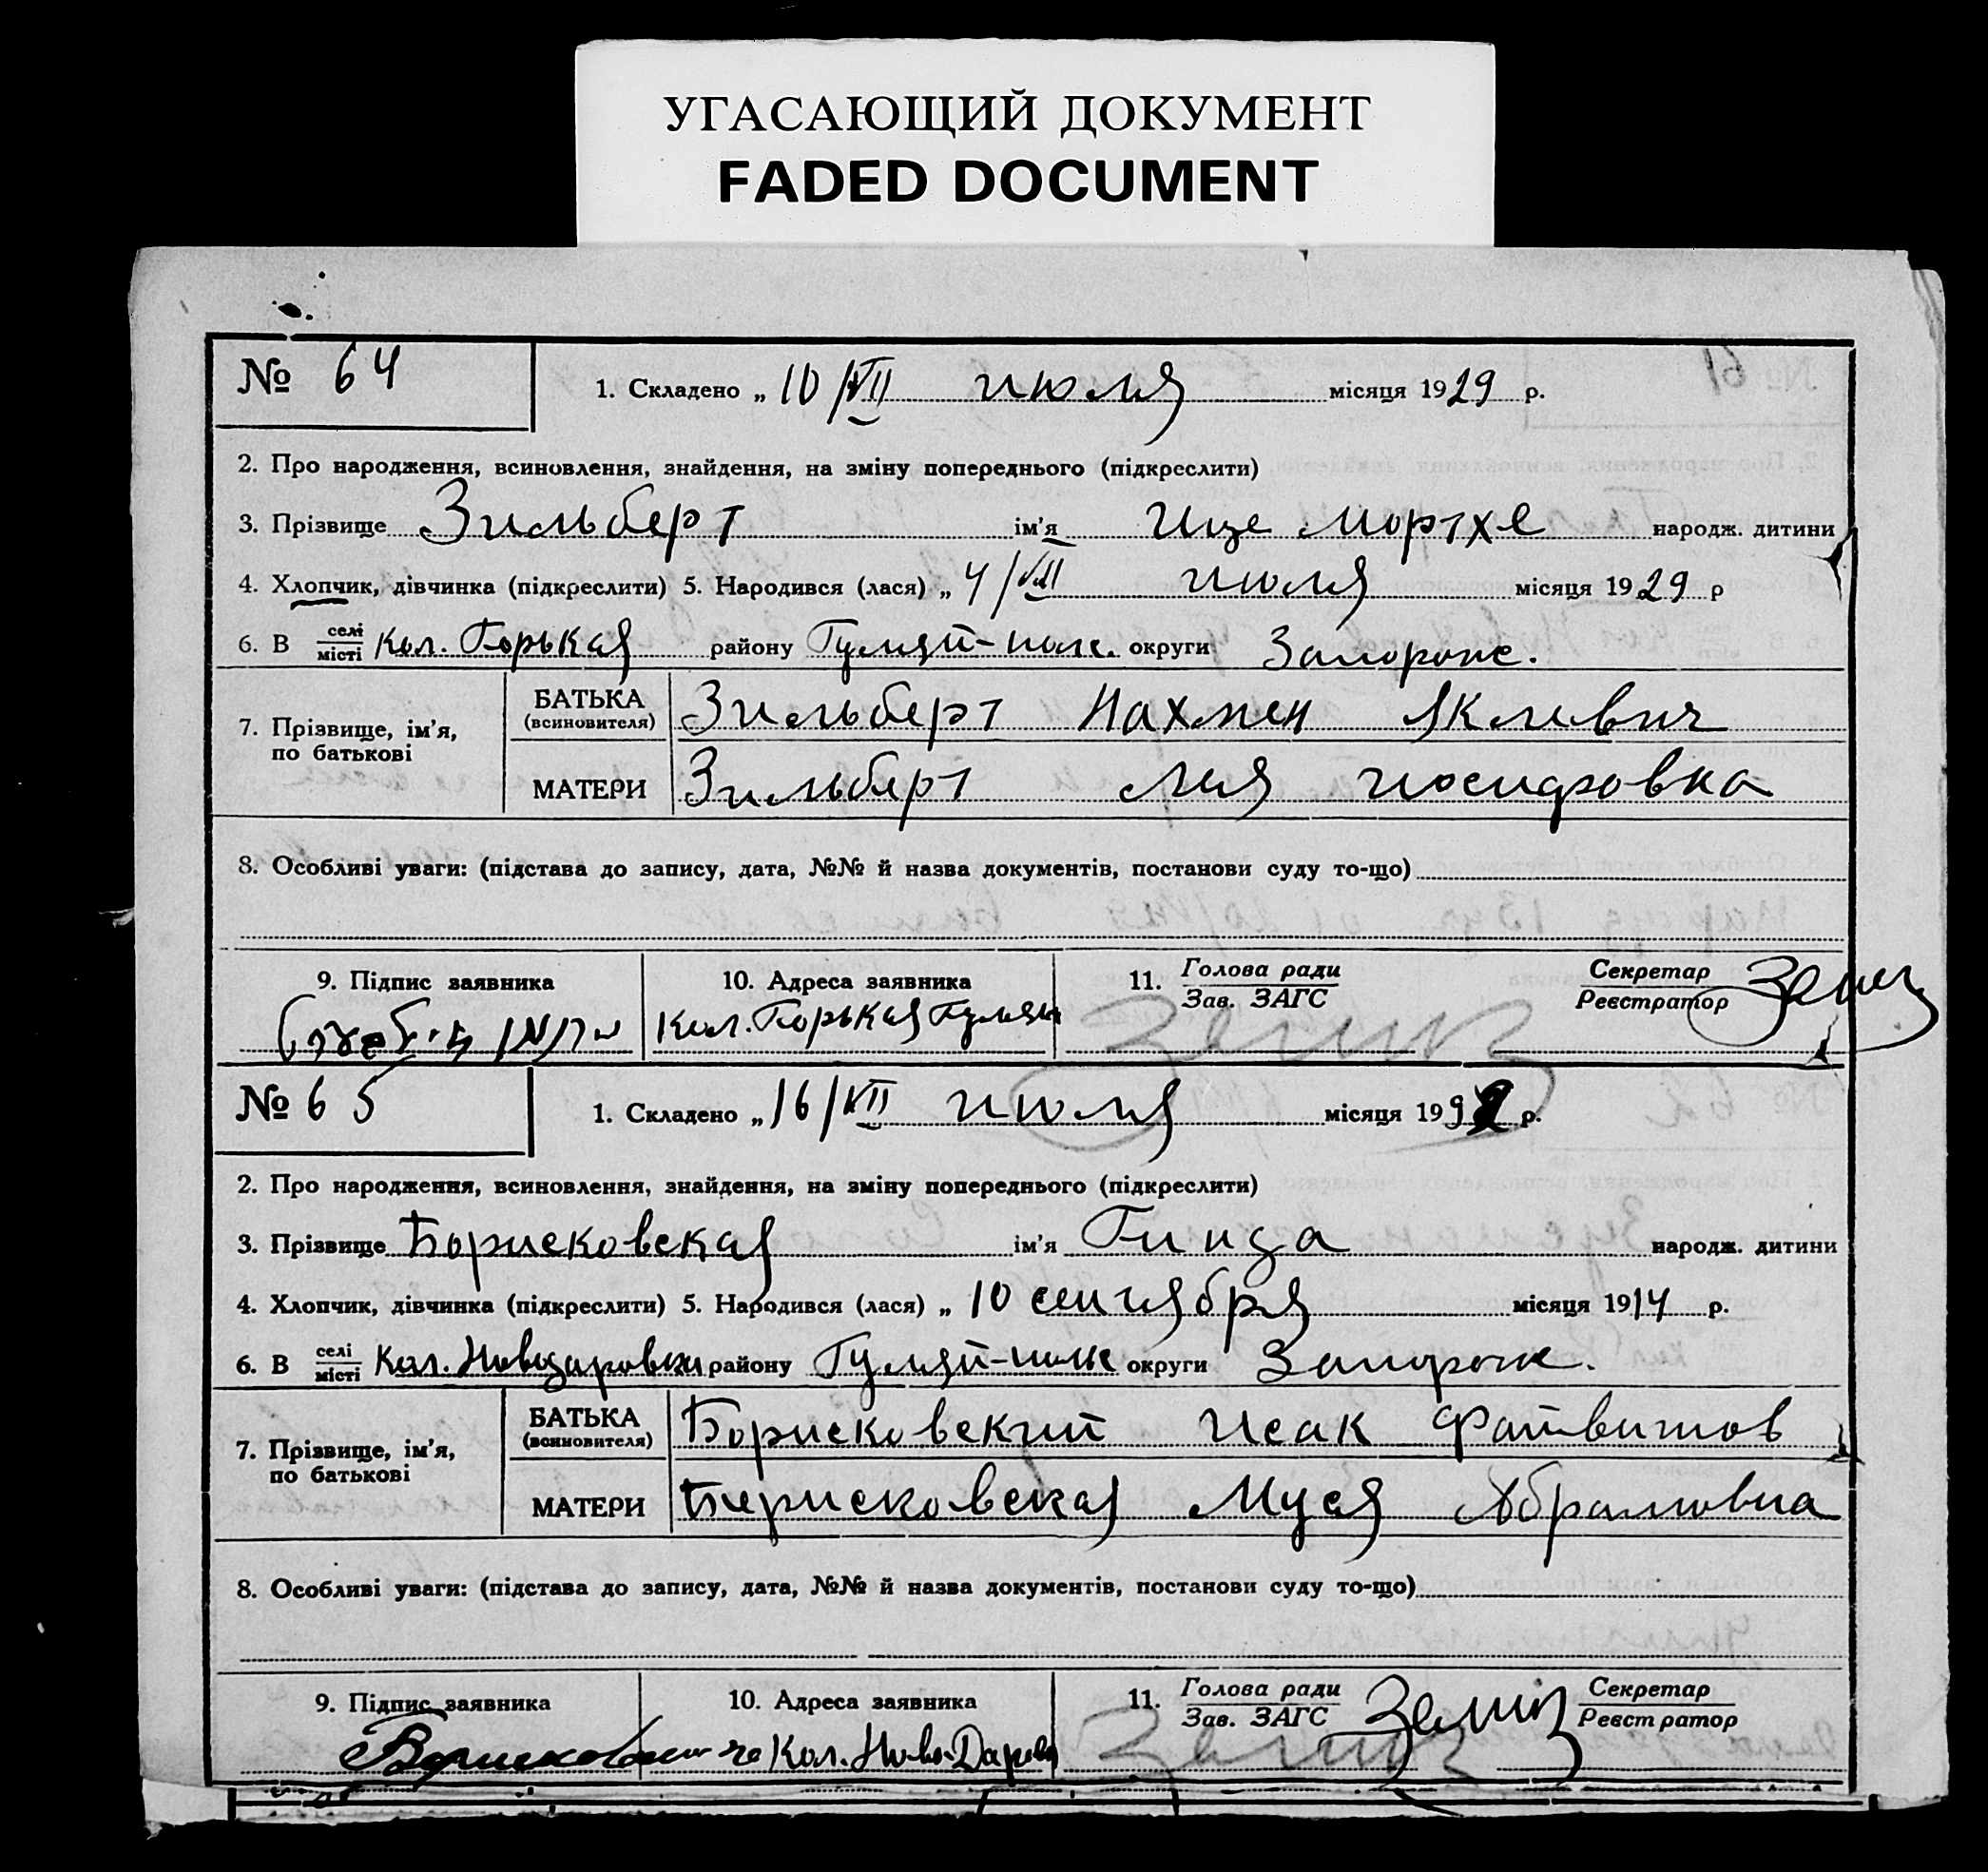 УГАСАЮЩИЙ ДОКУМЕНТ
FADED DOCUMENT
№ 64 1. Складено „ 10/VII июля місяця 1929 р.
2. Про народження, всиновлення, знайдення, на зміну попереднього (підкреслити)
3. Прізвище Зильберт ім’я Ице Мортхе народж. дитини
4. Хлопчик, дівчинка (підкреслити) 5. Народився (лася) „ 4/VII июля місяця 1929 р
6. В селі місті Кол. Горькая району Гуляй-поле. округи Запорож.
7. Прізвище, ім’я, по батькові
БАТЬКА (всиновителя) Зильберт Нахмен
МАТЕРИ Зильберт Лея Иосифовна
8. Особливі уваги: (підстава до запису, дата, №№ й назва документів, постанови суду то-що)
9. Підпис заявника 10. Адреса заявника 11. Голова ради Зав. ЗАГС Секретар Реєстратор
Кол. Горькая
№ 65 1. Складено „ 16/VII июля місяця 19 р.
2. Про народження, всиновлення, знайдення, на зміну попереднього (підкреслити)
3. Прізвище Борисковская ім’я Гинда народж. дитини
4. Хлопчик, дівчинка (підкреслити) 5. Народився (лася) „ 10 сентября місяця 1914 р.
6. В селі місті Кол. Новодаровка району Гуляй-поле округи Запорож.
7. Прізвище, ім’я, по батькові
БАТЬКА (всиновителя) Борисковский Исак
МАТЕРИ Борисковская Муся Абрамовна
8. Особливі уваги: (підстава до запису, дата, №№ й назва документів, постанови суду то-що)
9. Підпис заявника 10. Адреса заявника 11. Голова ради Зав. ЗАГС Секретар Реєстратор
Кол. Ново-Даров